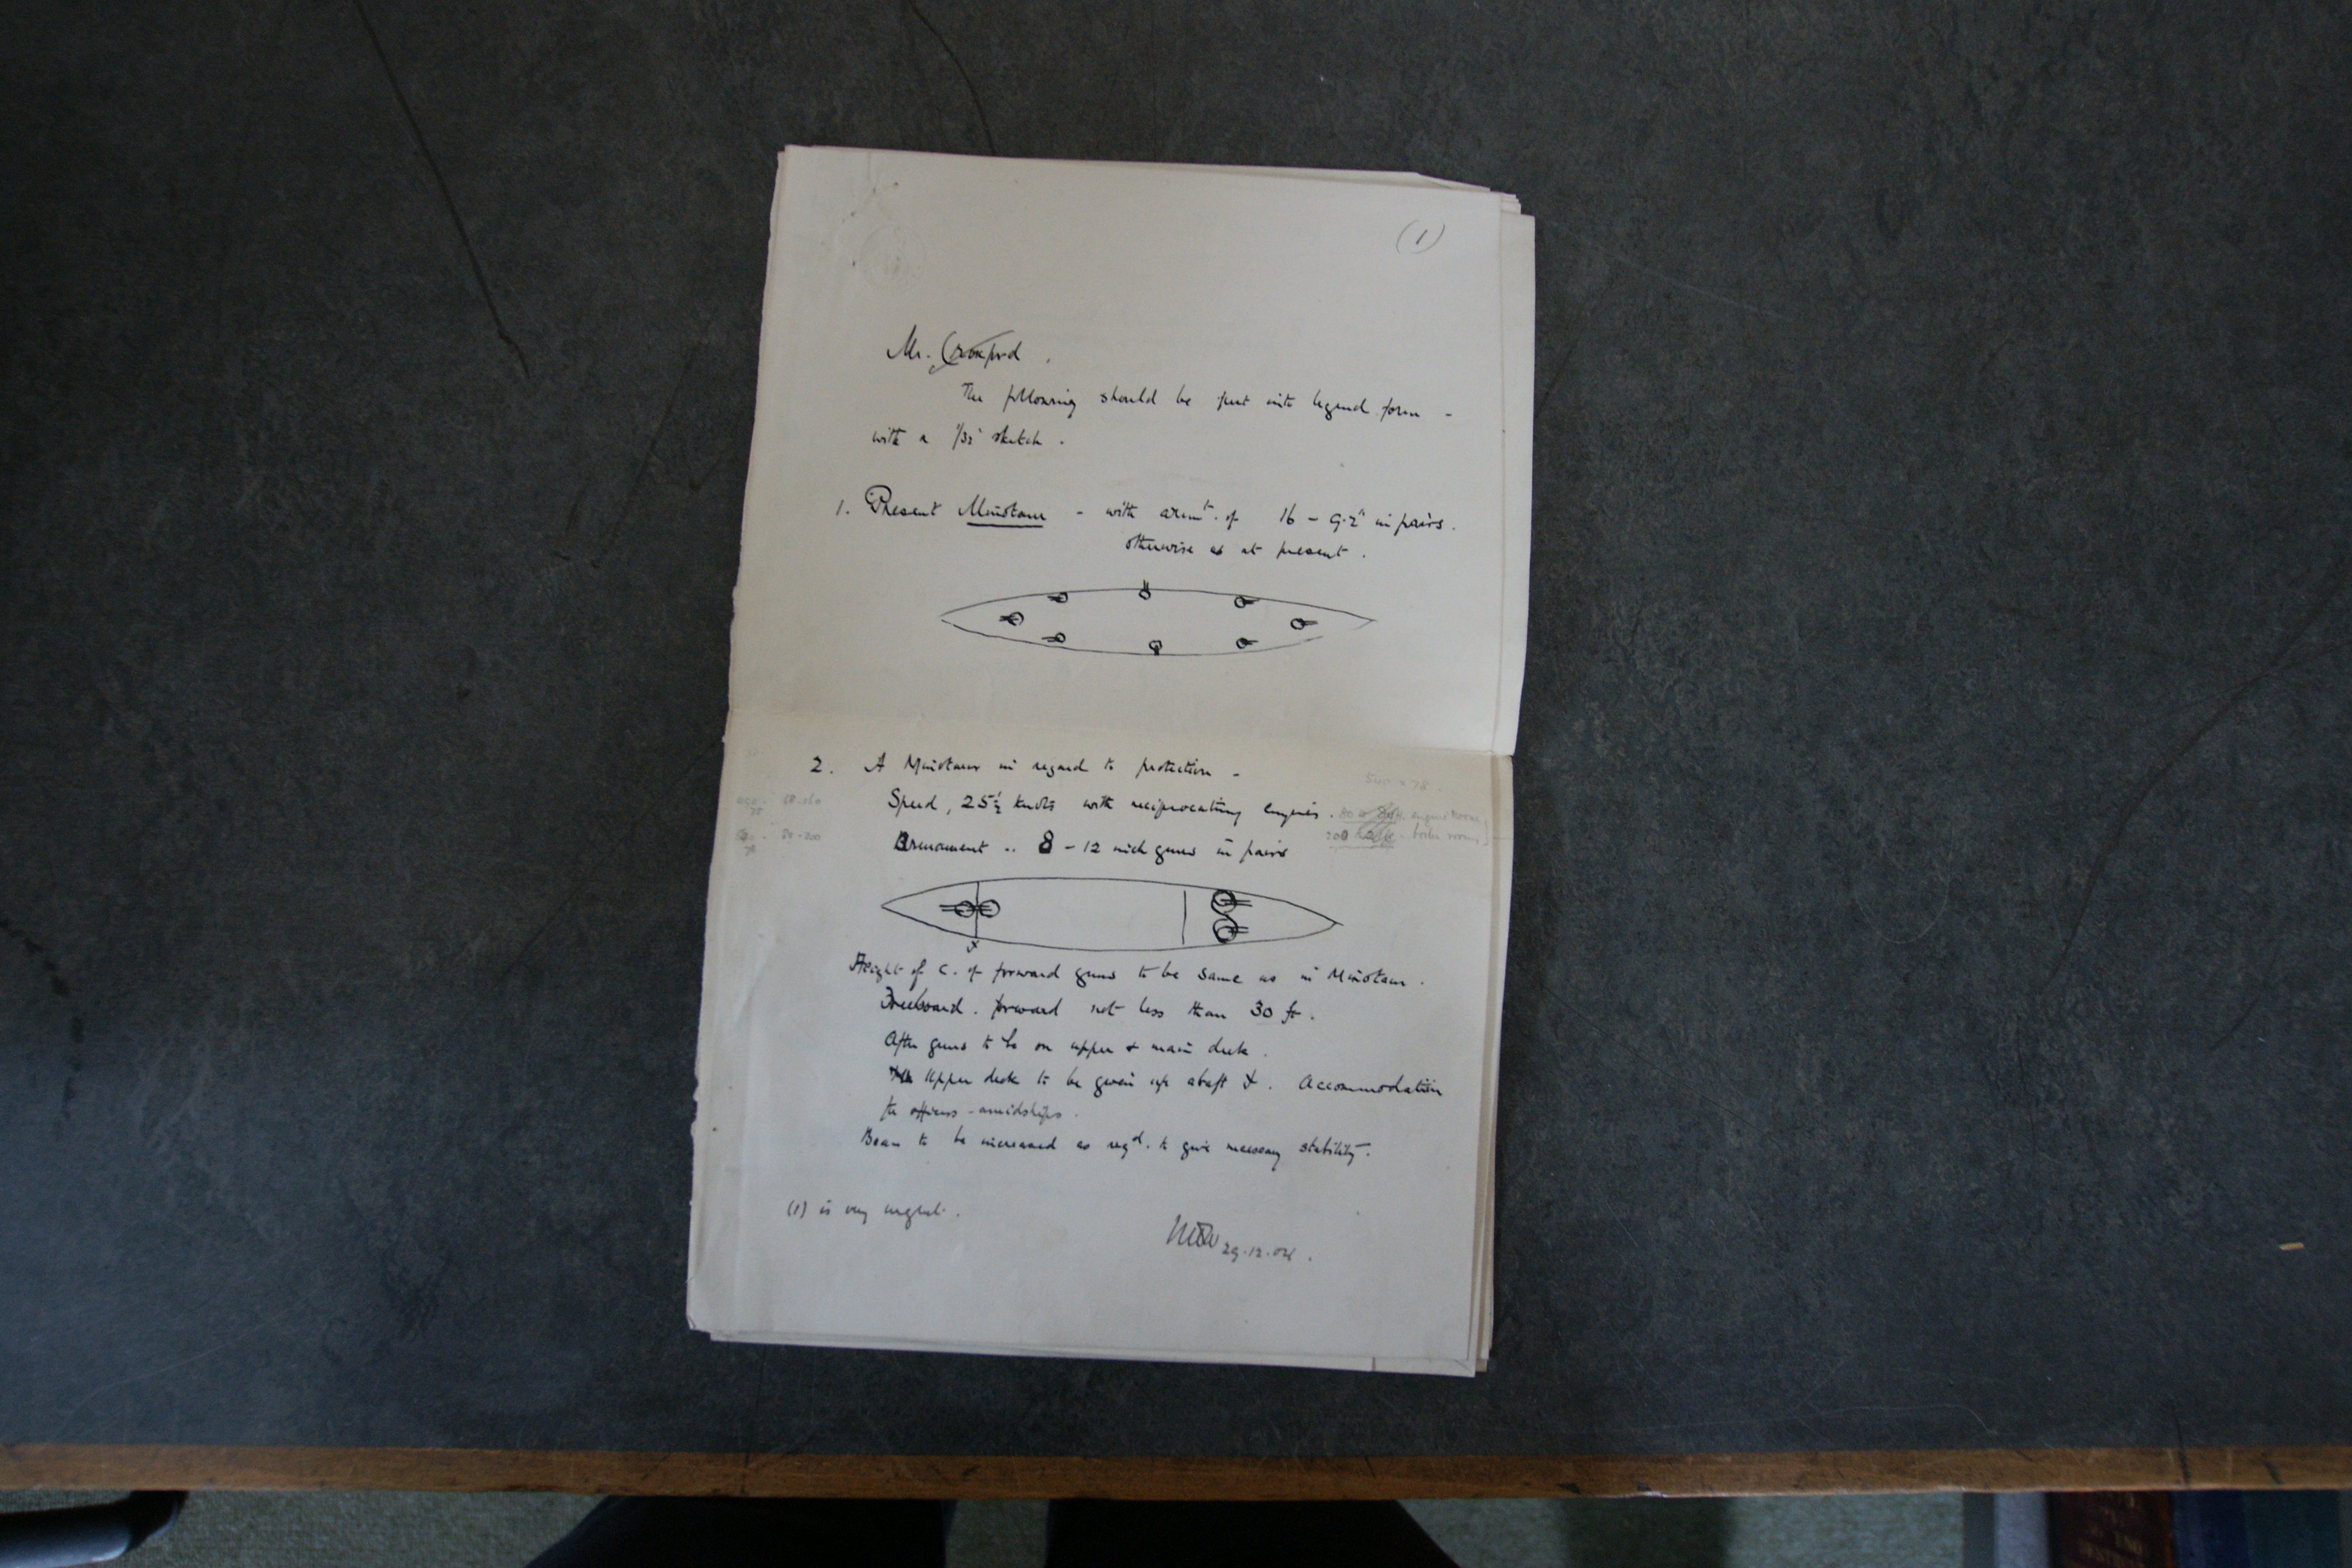 (1)
Mr. Croxford.
The following should be put into legend form -
with a 1/32" sketch.
1. Present Minotaur - with armt. of 16 - 9.2" in pairs.
otherwise as at present.
2. A Minotaur in regard to protection -
500 x 78
Speed, 25½ knots with reciprocating engines.
engine rooms
Armament .. 8 - 12 inch guns in pairs
200
boiler rooms
x
Height of c. of forward guns to be same as in Minotaur.
Freeboard. forward not less than 30 ft.
After guns to be on upper & main deck.
Upper deck to be given up abaft x. Accommodation
for officers - amidships.
Beam to be increased as reqd. to give necessary stability.
(1) is very urgent.
29.12.04.